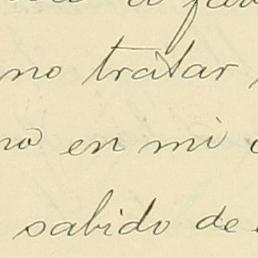 no tratar
en mi
sabido de